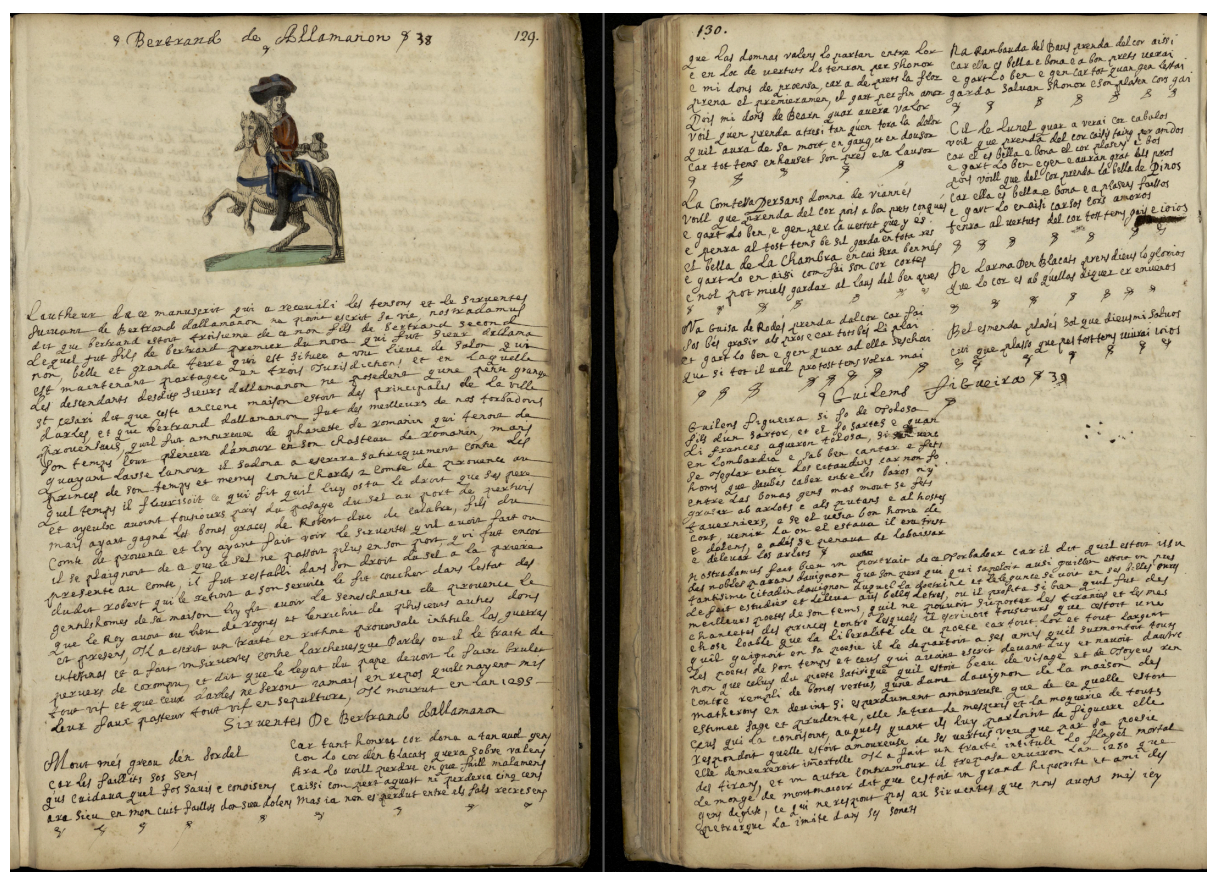 Bertrand de Allamanon 38
129.
Lautheur dace manuscrit qui a receuili les tensons et le sirventes
suivant de Bertrand dallamanon ne point escrit sa vie, nostradamus
dit que bertrand estoit troisieme de ce nom fils de Bertrand second
Lequel fut fils de bertrand premier du nom qui fut sieur dallama
non, belle et grande terre qui est situee a une lieue de salon qui
est maintenant partagee en trois Jurisdictions et en laquelle
les descendants desdits sieurs dallamanon ne possedent qune petite grange
et cesari dit que ceste anciene maison estoit des principales de la ville
darles, et que Bertrand dallamanon fut des meilleurs de nos torbadours
provensaus, quil fut amoureux de phanette de romanin qui tenoit de
son temps cour pleniere damour en son chasteau de romanin, mais
quayant laisse lamour il sadona a escrire satiriquement contre les
princes de son temps et memes contre Charles 2 Comte de provence au
quel temps il fleurissoit ce qui fit quil luy osta le droit que ses pere
et ayeulx avoint tousiours pris du pasage du sel au port de pertuis
mais ayant gagné les bones graces de Robert duc de calabre, fils du
Comte de provence et luy ayant fait voir le sirventes quil avoit fait ou
il se plaignoit de ce que le sel ne passoit plus en son port, qui fut encor
presente au comte, il fut restabli dans son droit du sel a la priere
dudit robert qui le retint a son service le fit coucher dans lestat des
gentilshomes de sa maison luy fit avoir la seneschausee de provence le
que le Rey avoit au lieu de rognes et lenrichit de plusieurs autres dons
et presens, Il a escrit un traite en rithme provensale intitule las guerras
intestinas et a fait un sirventes contre larchevesque Darles ou il le traite de
pervers de corompu, et dit que le legat du pape devoit le faire bruler
tout vif et que ceux darles ne seront jamais en repos quils nayent mis
leur faux pasteur tout vif en sepulture, Il mourut en lan 1295
Sirventes De Bertrand dallamanon
Mout mes greou den sordel
car les faillits sos sens
qus cuidava quel fos savis e conoisens
ara sieu en mon cuit faillits don sua dolens
Car tant honrat cor dona a tan aud gens
Con lo cor den Blacats quera sobre valens
Ara lo voill perdre en que faill malamens
caissi com pert aquest ni perderie cinq cens
Mas ia non es perdut entre els fals recresens
130.
que las domnas valens lo partan entre lor
e en loc de vertuts lo tenran per shonor
e mi dons de proensa, car a de prets la flor
prena el premieramen, el gart per fin amor
Pois mi dons de Bearn quar avera valor
voil quen prenda atresi tan quen tora la dolor
quil aura de sa mort en gaug, et en dousor
car tot tens enhauset son pres e sa lausor
La Comtessa Persans domna de viannes
voill que prenda del cor pois a bon prets conques
e gart lo ben, e gen per la vertut que y es
e penra al tost tems be sil garda en tota res
el bella de La Chambra en cui sera ben mes
e gart lo en aisi com fai son cor cortes
e nol pot miels gardar al laus del ben apres
Na Guisa de Rodes prenda del cor car fai
sos bes grasir als pros e car tots bes li plai
et gart lo ben e gen quar ad ella seschai
que si tot il val pro tost tens volra mai
Na Rambauda del Baus prenda del cor aissi
car ella es bella e bona e a bon prets verai
e gart lo ben e gen car tot quan gen lestai
garda salvan shonor e son platen cors gai
Cil de Lunel quar a verai cor cabalos
voil que prenda del cor caissi taing per amdos
car el es bella e bona el cor plasens e bos
e gart lo ben e gen e auran grat dels pros
pois voill que del cor prenda la bella de Pinos
car ella es bella e bona e a plasens faissos
e gart lo enaisi car sos cors amoros
tenra al vertuts del cor tost tems gais e ioios
De Larma Den Blacats prens dieus lo glorios
que lo cor es ab quellas diquer er enveros
Bel esmenda plases sol que dieus mi salvos
cui que plasso que pes tost tems vivrai ioios
Guilems Figueira 39
Guilens figueira si fo de Tolosa
fils dun sartor, et el fo sartres e quan
li frances agueron tolosa, si sen venc
en lombardia e sab ben cantar e fets
se Joglar entre los ciutadins car non fo
homs que saubes caber entre los baros ny
entre las bonas gens mas mout se fets
grasir ab arlots e als putans e al hostes
taverniers, e se el vesia bon home de
cort, venir la on el estava il era trist
e dolens, e ades se penava de labaissar
e delevar los arlots
nostradamus fait bien un autre portrait de ce Torbadour car il dit quil estoit issu
des nobles parans davignon que son pere que qui sapeloit aussi guillen estoit un des
tantisime citadin davignon duquel la doctrine et lelegance se voit en ses belles
le fit estudier et lesleva aus belles letres, ou il profita si bien quil fut des
meilleurs poetes de son tems, quil ne pouvoit suporter les tiranies et les mes
chancetes des princes contre lesquels il escrivoit tousiours que cestoit une
chose loable que la liberalité de ce poete car tout lor et tout largent
quil gaignoit en sa poesie il le departoit a ses amis quil surmontoit tous
les poetes de son temps et ceus qui avoint escrit devant luy et navoit dautre
nom que celuy du poete satirique quil estoit beau de visage et de moyens ren
contre rempli de bones vertus, qune dame davignon de la maison des
matherons en devint si esperdument amoureuse que de ce quelle estoit
estimee sage et prudente, elle satira de mespris et la moquerie de touts
ceus qui la conoisoint, ausquels quant ils luy parloint de figuiere elle
respondoit quelle estoit amoureuse de ses vertus veu que par sa poesie
elle demeureroit imortelle Il a fait un traite intitule lo flagel mortal
des tirans, et un autre contramour il trepasa environ lan 1250 que
le monge de montmaiour dit que cestoit un grand hipocrite et ami des
gens deglise, ce qui ne respont pas au sirventes que nous avons mis icy
petrarque la imite dans ses sonets